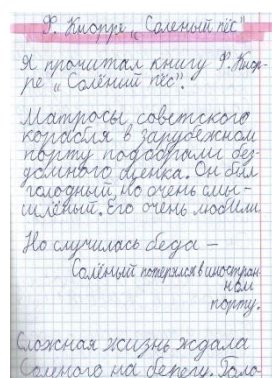 Ф. Кнорре „Соленый пёс"
Я прочитал книгу Ф. Кнор-
ре „Солёний пёс".
Матросы советского
корабля в зарубежном
порту подобрали без-
домного щенка. Он был
голодный, но очень смы-
шлёный. Его очень любили
Но случилась беда –
Солёный потерялся в иностран
ном
порту.
Сложная жизнь ждала
Соленого на берегу. Голо-